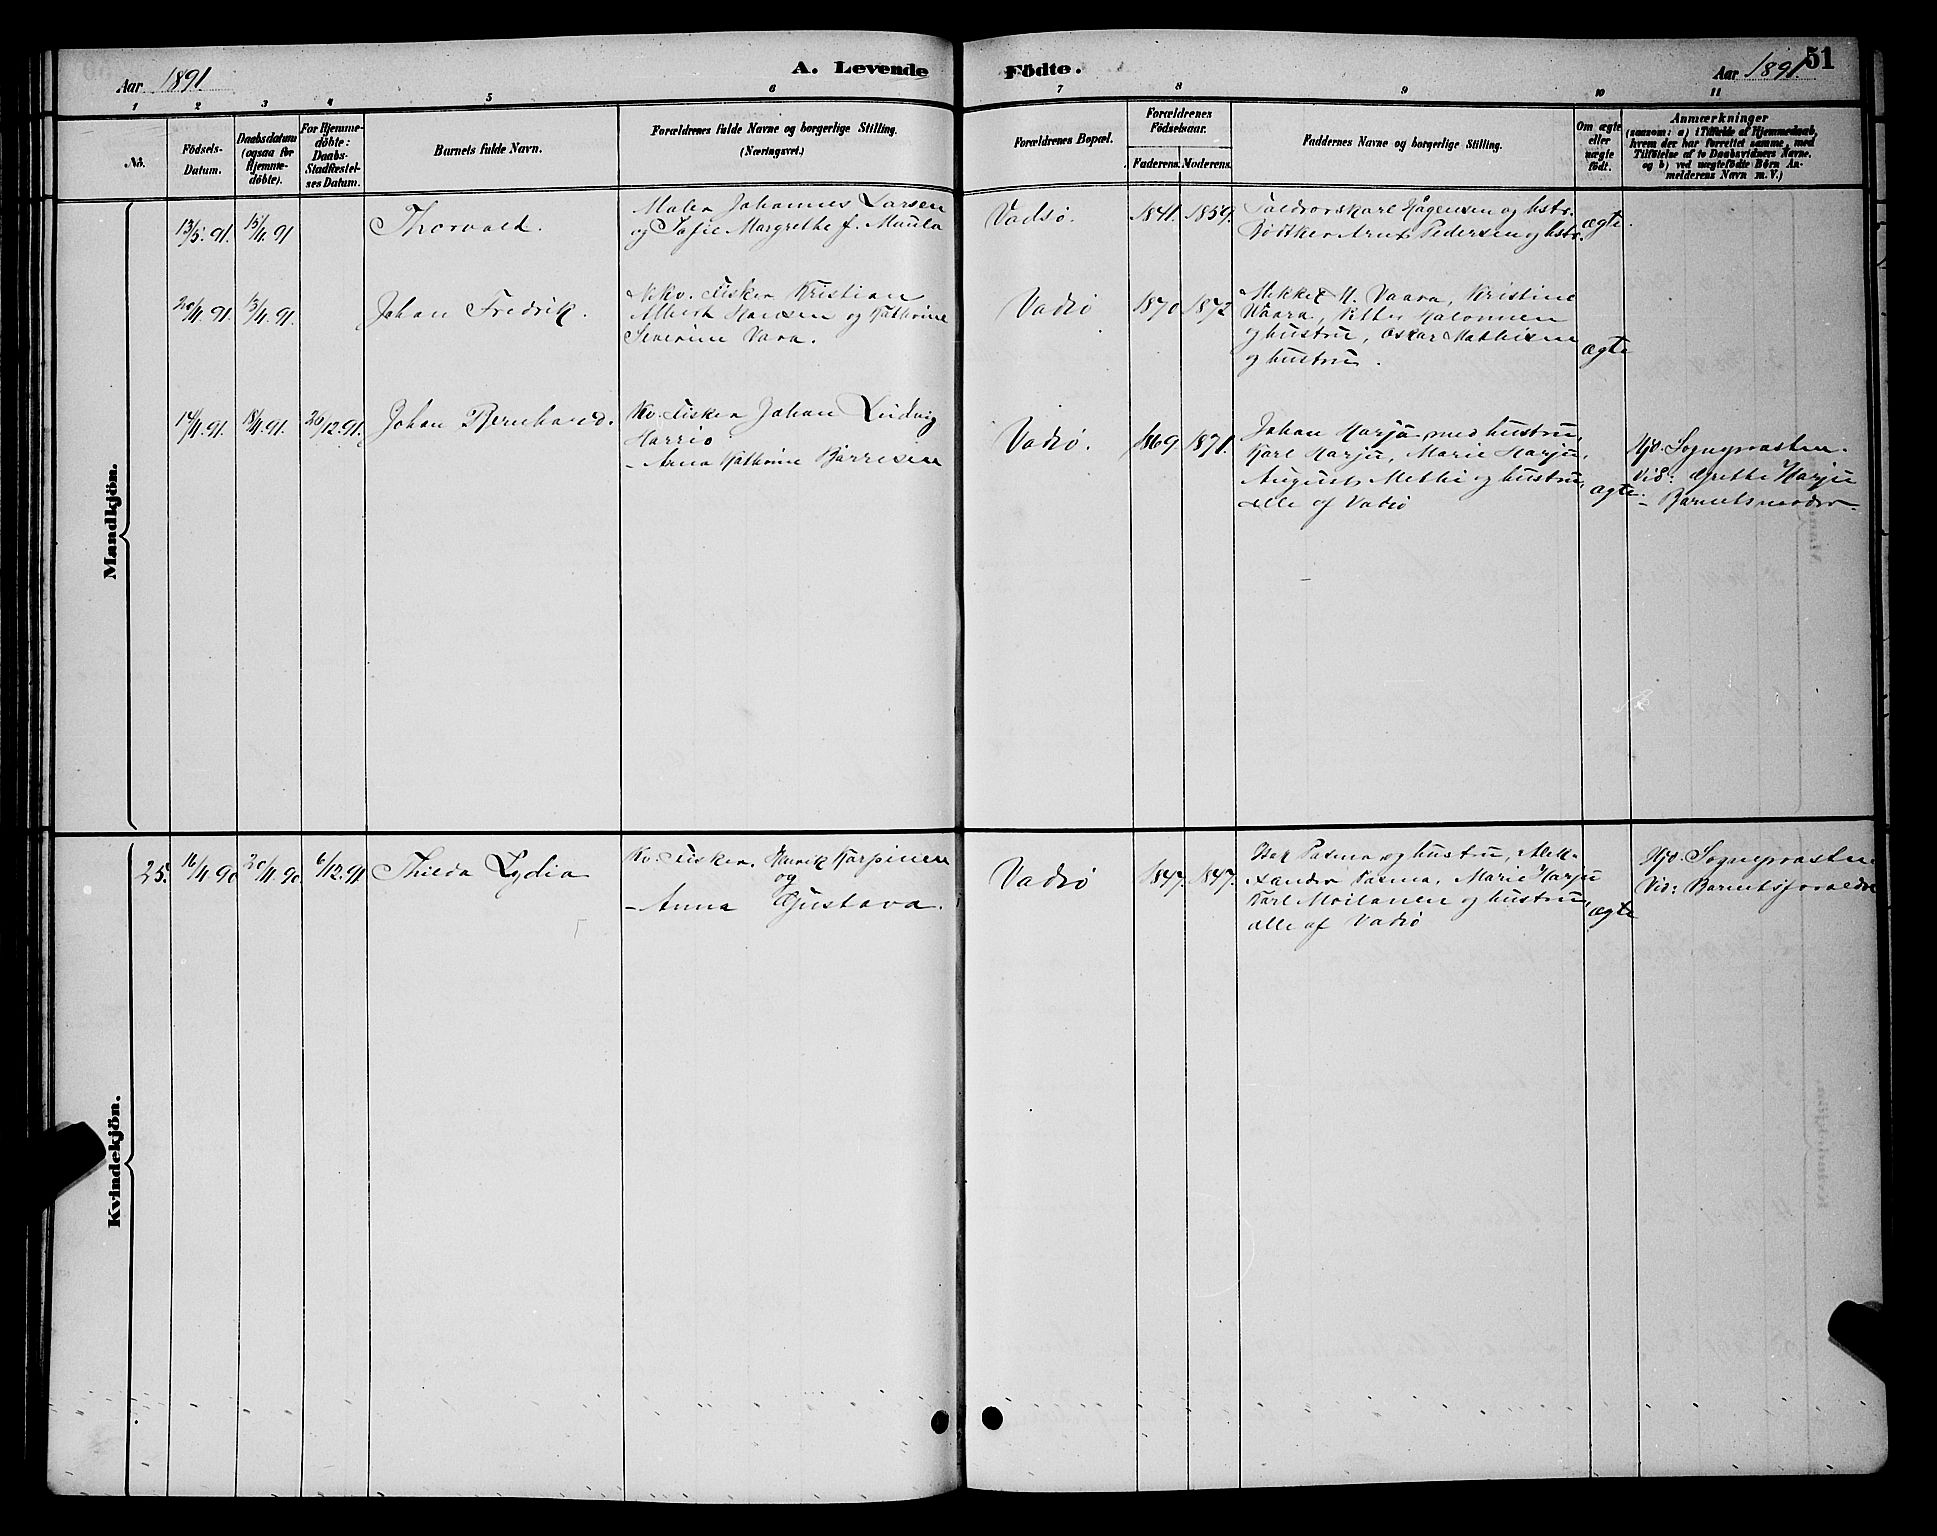 Aar 1891
A. Levende
Födte.
Aar 1891.
51
1 2 3 4 5 6 7 8 9 10 11
No.
Födsels-
Datum.
Daabsdatum
(ogsaa for
Hjemme-
döbte).
For Hjemme-
döbte:
Daabs-
Stadfæstel-
ses Datum.
Barnets fulde Navn.
Forældrenes fulde Navne og borgerlige Stilling.
(Næringsvei.)
Forældrenes Bopæl.
Forældrenes
Födselsaar.
Faderens. Moderens.
Faddernes Navne og borgerlige Stilling.
Om ægte
eller
uægte
födt.
Anmærkninger
(saasom: a) i Tilfælde af Hjemmedaab,
hvem der har forrettet samme, med
Tilföielse af to Daabsvidners Navne,
og b) ved uægtefödte Börn An-
melderens Navn m. V.)
Mandkjön.
13/5.91. 15/4.91 Thorvald.
Maler Johannes Larsen
og Sofie Margrethe f. Maula
Vadsø. 1841. 1859.
Hågensen og hstr.
Arnt Pedersen og hstr.
ægte.
20/4.91. 13/4.91. Johan Fredrik.
Fisker Kristian
Albert Hansen og Kathrine
Severine Vara.
Vadsø 1870 1872
Mikkel M. Vaara, Kristine
Waara, Petter Salonnen
og hustru, Oskar Mathisen
og hustru.
ægte
14/4.91. 18/4.91. 26/12.91. Johan Bernhard.
Kv. Fisker Johan Ludvig
Harrio
- Anna Kathrine Børresen
Vadsø. 1869 1871.
Johan Harju med hustru,
Karl Harju, Marie Harju,
August Methi og hustru,
alle af Vadsø
ægte.
Hjd. Sognepræsten.
Vid: Grethe Harju
- Barnets moder.
Kvindekjön.
25. 16/4.90 20/4.90. 6/12.91 Thilda Lydia
Kv. Fisker. Henrik Karpinen
og
- Anna Gustava.
Vadsø 1847. 1847.
Isak Pasma og hustru, Alek-
sander Pasma, Marie Harju
Karl Moilanen og hustru,
alle af Vadsø
ægte
Hjd. Sognepræsten
Vid: Barnets forældre